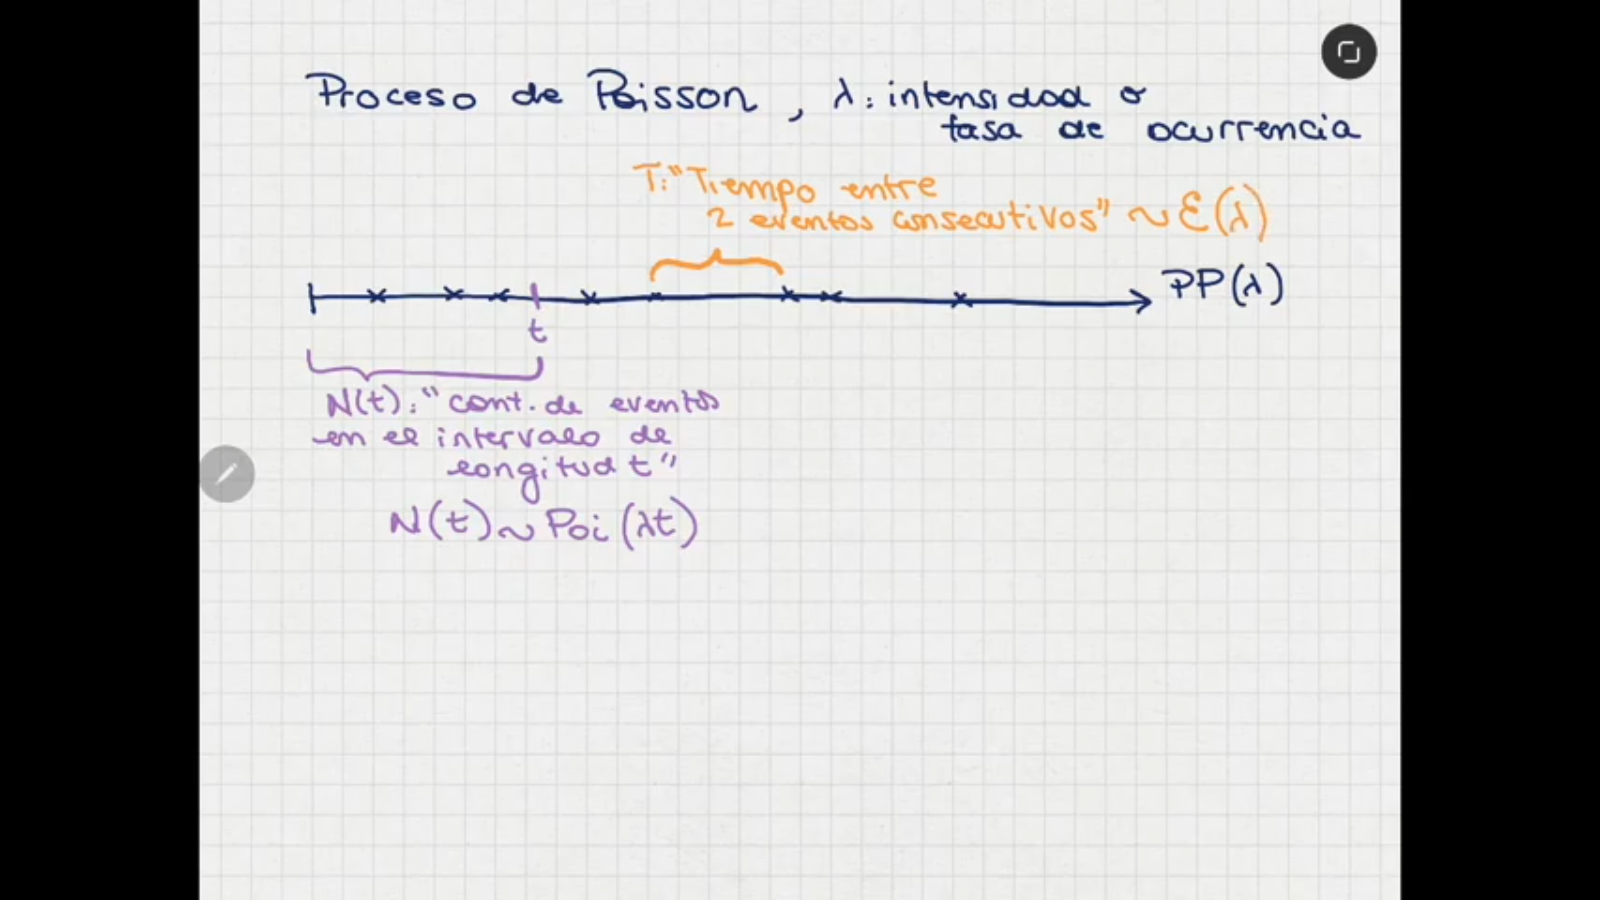 Proceso de Poisson, λ: intensidad o
tasa de ocurrencia
T: "Tiempo entre
2 eventos consecutivos" ~ Ɛ(λ)
PP(λ)
t
N(t): "cont. de eventos
en el intervalo de
longitud t"
N(t) ~ Poi (λt)